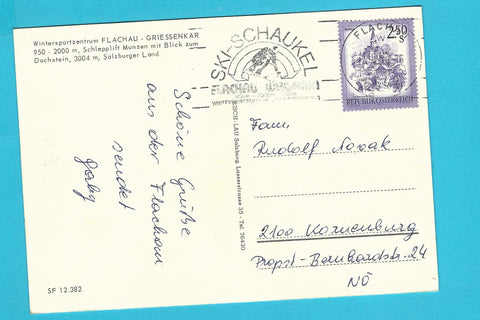 Wintersportzentrum FLACHAU - GRIESSENKAR
950 - 2000 m, Schlepplift Munzen mit Blick zum
Dachstein, 3004 m, Salzburger Land
SKI-SCHAUKEL
FLACHAU WAGRAIN
FLACHAU
2.50
REPUBLIK ÖSTERREICH
Schöne Grüße
aus der Flachau
sendet
Gaby
Lau Salzburg, Lasserstrasse 35 - Tel. 76430
Fam.
Rudolf Novak
2100 Korneuburg
Propst-Bernhardstr. 24
NÖ
SF 12.382